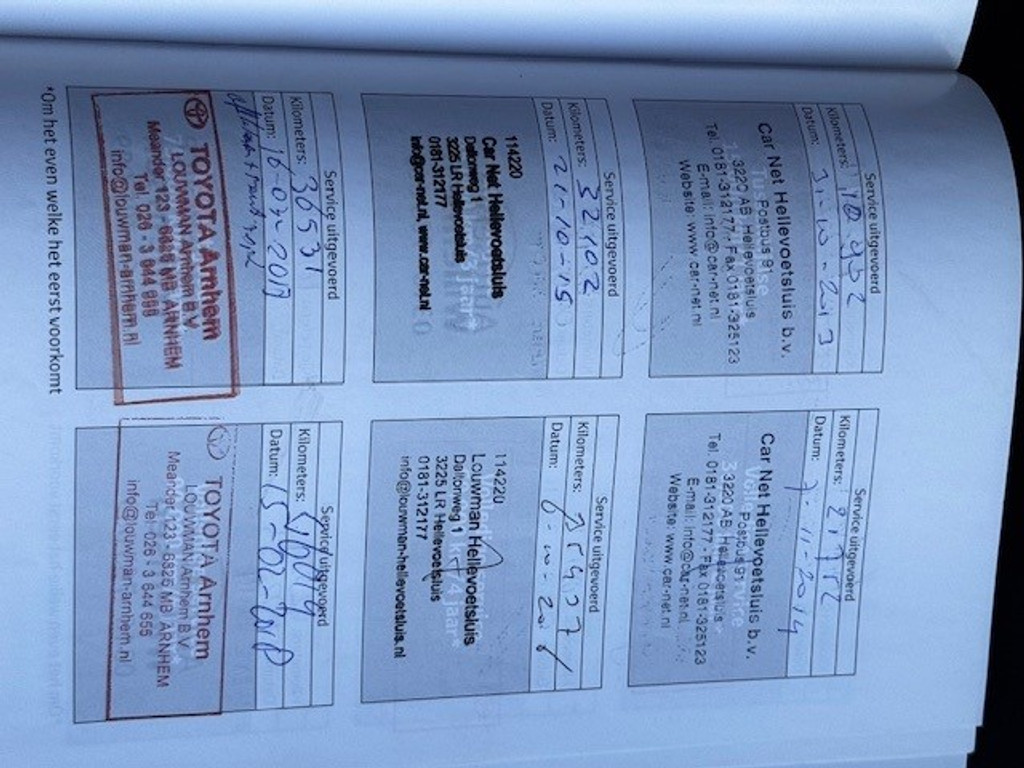 Service uitgevoerd
Kilometers:
Datum:
Car Net Hellevoetsluis b.v.
Postbus 91
3220 AB Hellevoetsluis
Tel. 0181-312177 - Fax 0181-325123
E-mail: info@car-net.nl
Website: www.car-net.nl
Kilometers:
Datum: 7-11-2014
Car Net Hellevoetsluis b.v.
Postbus 91
3220 AB Hellevoetsluis
Tel. 0181-312177 - Fax 0181-325123
E-mail: info@car-net.nl
Website: www.car-net.nl
Service uitgevoerd
Kilometers: 32102
Datum: 21-10-15
114220
Car Net Hellevoetsluis
Daltonweg 1
3225 LR Hellevoetsluis
0181-312177
info@car-net.nl, www.car-net.nl
Service uitgevoerd
Kilometers:
Datum:
114220
Louwman Hellevoetsluis
Daltonweg 1
3225 LR Hellevoetsluis
0181-312177
info@louwman-hellevoetsluis.nl
Service uitgevoerd
Kilometers: 36531
Datum:
TOYOTA Arnhem
LOUWMAN Arnhem B.V.
Meander 123 - 6825 MB ARNHEM
Tel. 026 - 3 644 655
info@louwman-arnhem.nl
Service uitgevoerd
Kilometers:
Datum: 15-02-2018
TOYOTA Arnhem
LOUWMAN Arnhem B.V.
Meander 123 - 6825 MB ARNHEM
Tel. 026 - 3 644 655
info@louwman-arnhem.nl
*Om het even welke het eerst voorkomt